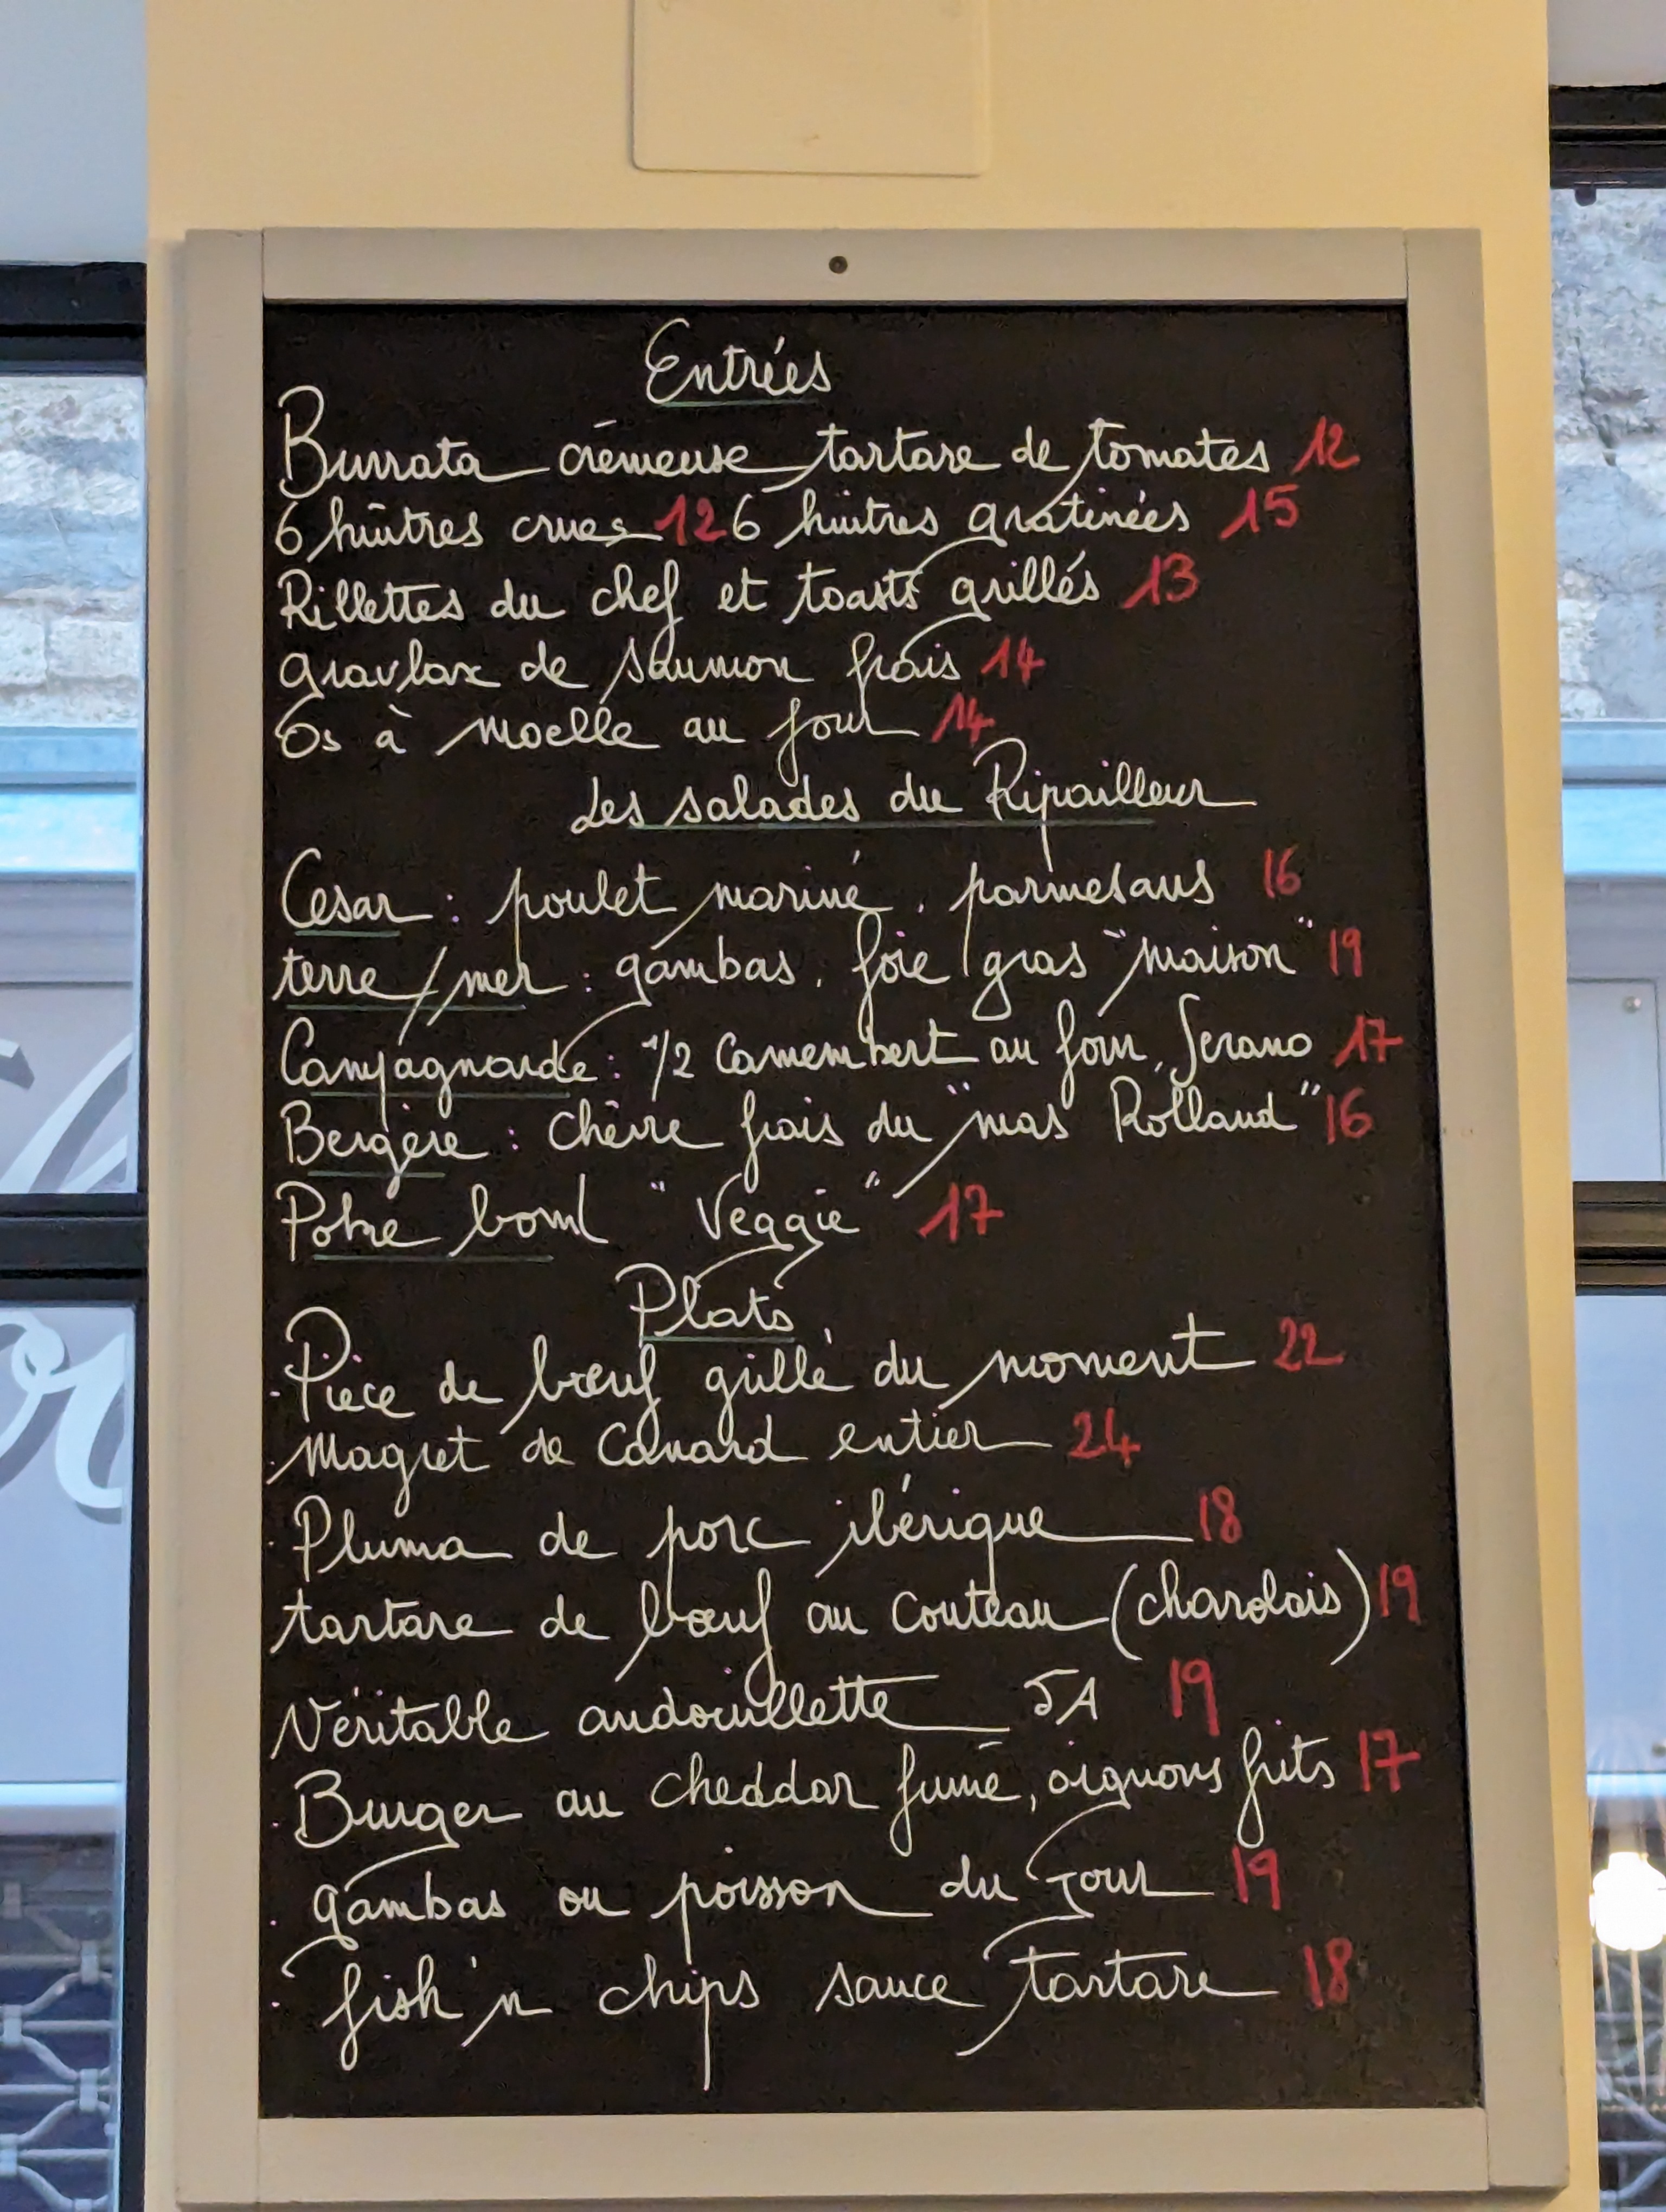 Entrées
Burrata crémeuse tartare de tomates 12
6 huîtres crues 12 6 huîtres gratinées 15
Rillettes du chef et toasts grillés 13
gravlax de saumon frais 14
Os à moelle au four 14
Les salades du Ripailleur
Cesar : poulet mariné, parmesans 16
terre/mer : gambas, foie gras "maison" 19
Campagnarde : 1/2 Camembert au four, Serano 17
Bergère : chèvre frais du "mas Rolland" 16
Poke bowl "Veggie" 17
Plats
. Pièce de bœuf grillé du moment 22
. Magret de Canard entier 24
. Pluma de porc ibérique 18
tartare de bœuf au couteau (charolais) 19
Véritable andouillette 5A 19
. Burger au cheddar fumé, oignons frits 17
. gambas ou poisson du Jour 19
. fish'n chips sauce tartare 18